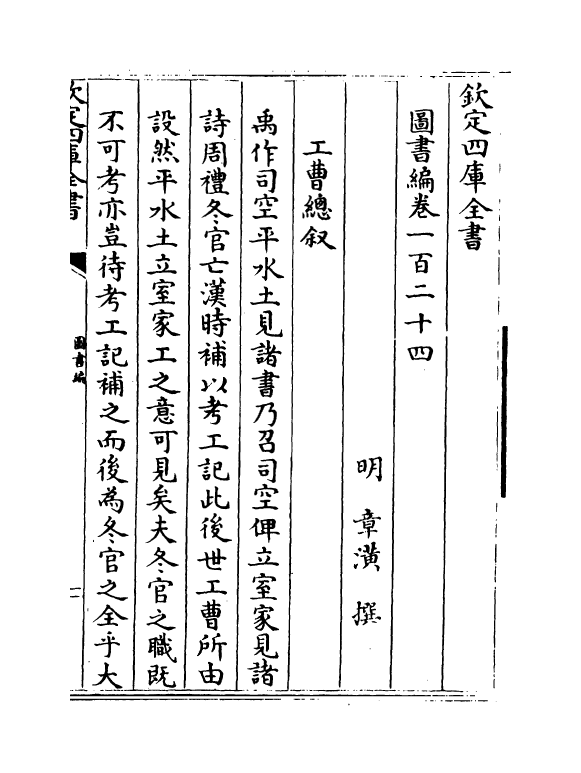 欽定四庫全書
圖書編卷一百二十四
明 章潢 撰
工曹總叙
禹作司空平水土見諸書乃召司空俾立室家見諸
詩周禮冬官亡漢時補以考工記此後世工曹所由
設然平水土立室家工之意可見矣夫冬官之職既
不可考亦豈待考工記補之而後為冬官之全乎大
欽定四庫全書
圖書編